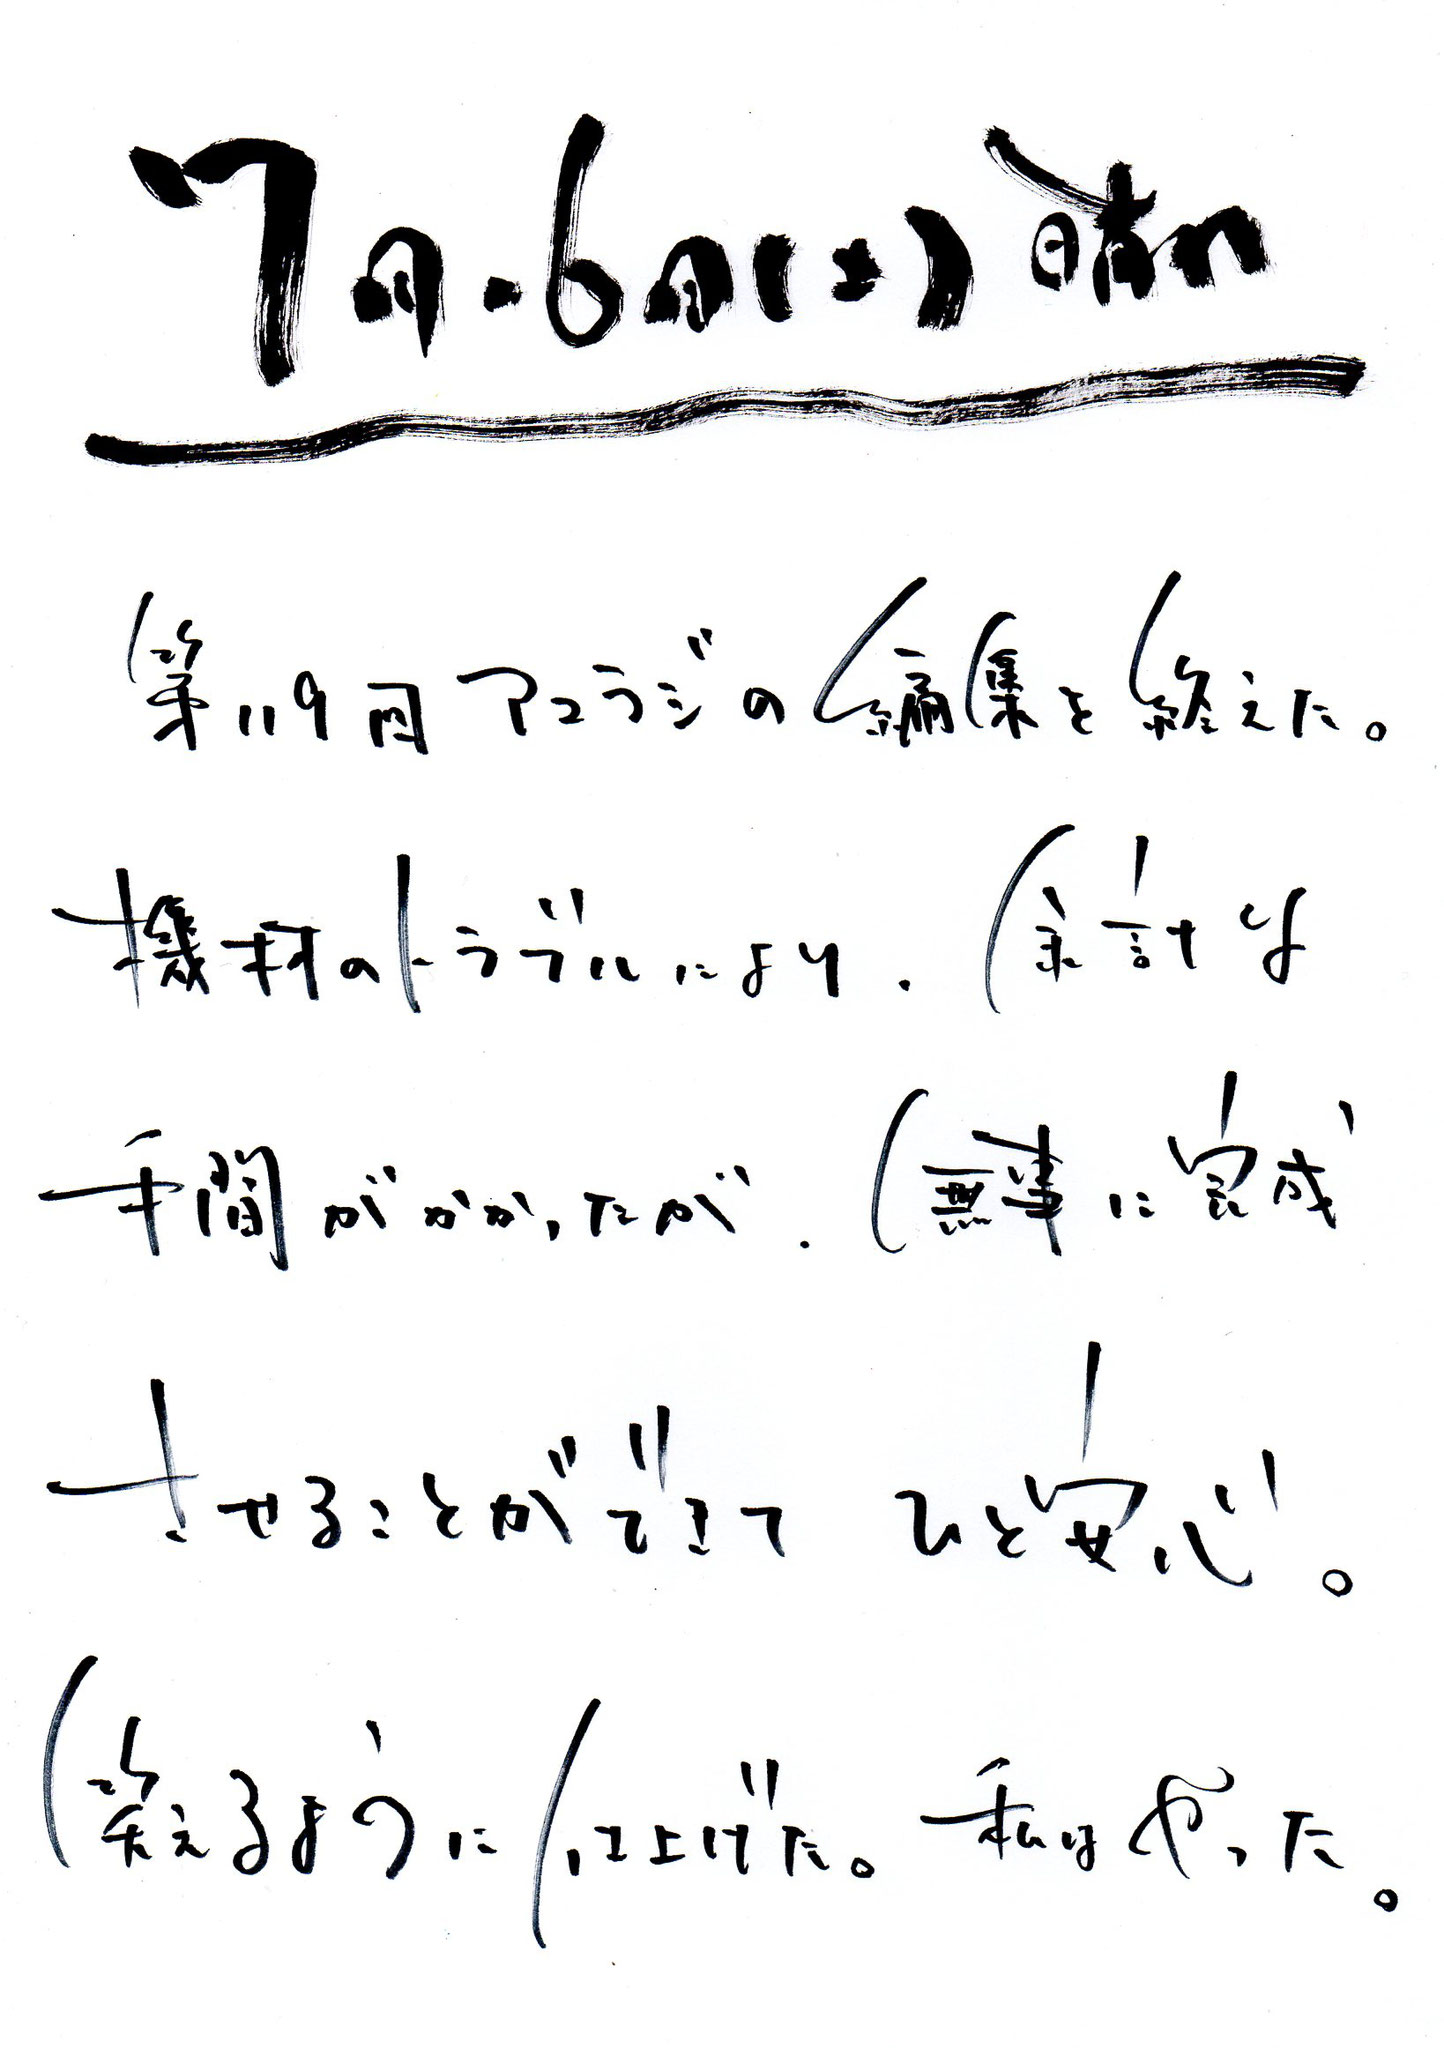 7月・6日(土)晴れ
第119回アコラジの編集を終えた。
機材のトラブルにより、余計な
手間がかかったが、無事に完成
させることができて ひと安心。
笑えるように仕上げた。私はやった。